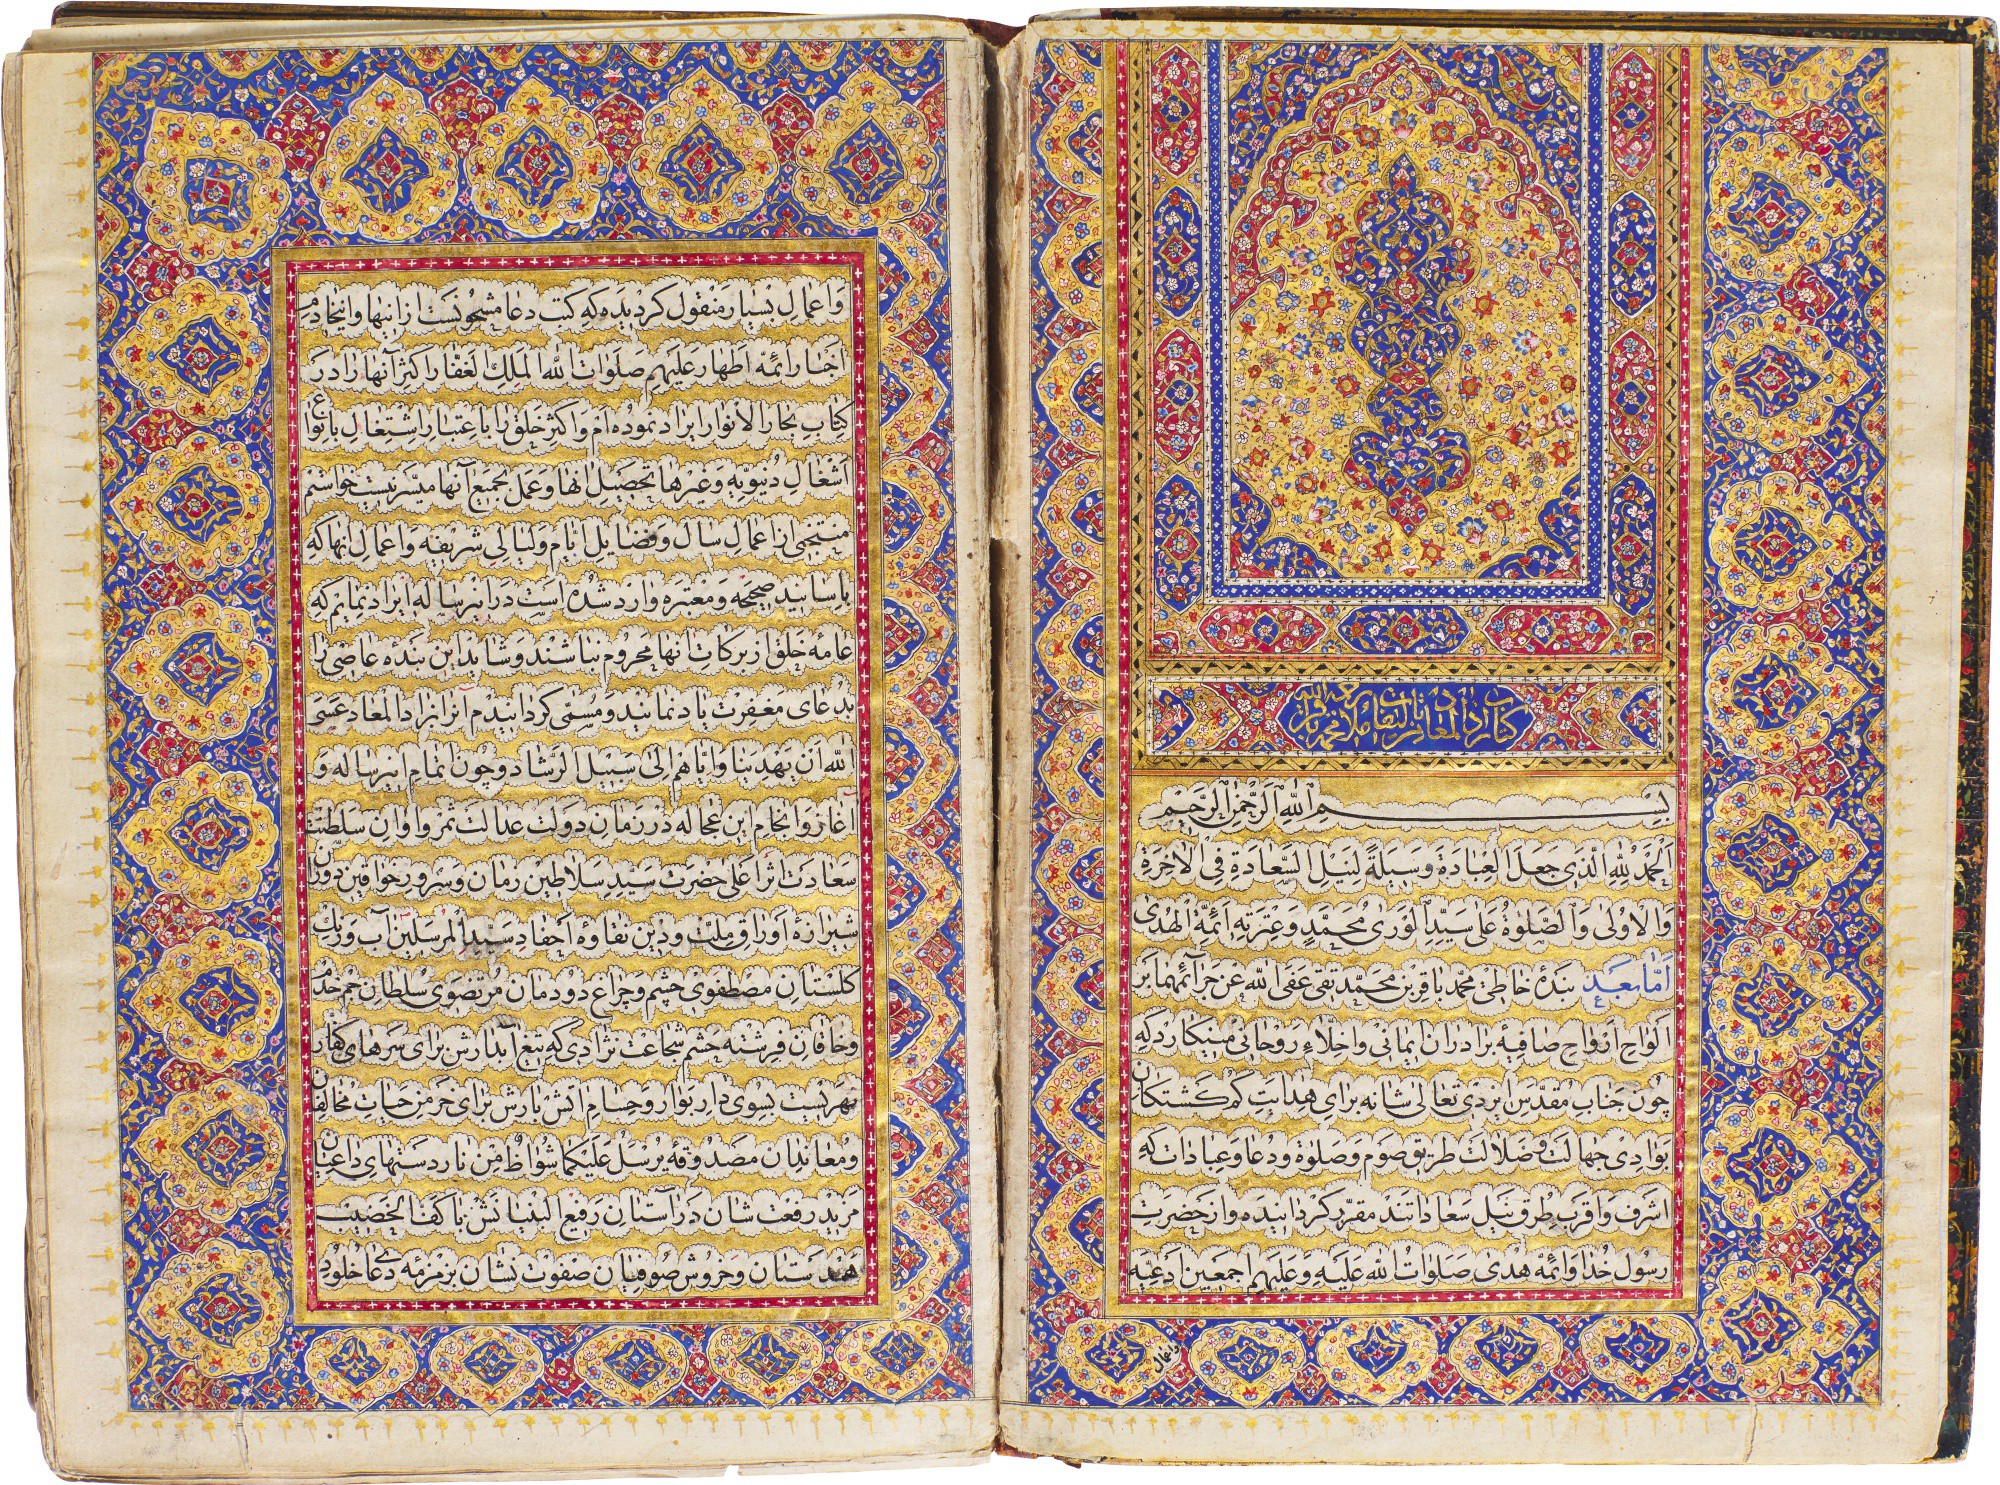 كتاب زاد المعاد من تأليفات ملا محمد باقر
بسم الله الرحمن الرحيم
الحمد لله الذي جعل العبادة وسيلة لنيل السعادة في الآخرة
والاولى والصلوة على سيد الورى محمد وعترته ائمة الهدى
اما بعد بنده خاطى محمد باقر بن محمد تقى عفى الله عن جرائمهما بر
الواح ارواح صافيه برادران ايمانى واخلاء روحانى مينكارد كه
چون جناب مقدس ايزدى تعالى شانه براى هدايت كم كشتكان
بوادى جهالت و ضلالت طريق صوم وصلوة ودعا وعبادات كه
اشرف واقرب طرق نيل سعاداتند مقرر كردانيده واز حضرت
رسول خدا وائمه هدى صلوات الله عليه وعليهم اجمعين ادعيه
واعمال
واعمال بسيار منقول كرديده كه كتب دعا مشحونست از انها واين خادم
اخبار ائمه اطهار عليهم صلوات الله الملك الغفار اكثر آنها را در
كتاب بحار الانوار ايراد نموده ام واكثر خلق را باعتبار اشتغال بانواع
اشغال دنيويه وغيرها تحصيل انها وعمل بجميع آنها ميسر نيست خواستم
منتخبى از اعمال سال وفضايل ايام وليالى شريفه واعمال انها كه
باسانيد صحيحه ومعتبره وارد شده است در اين رساله ايراد نمايم كه
عامه خلق از بركات انها محروم نباشند وشايد اين بنده عاصى را
بدعاى مغفرت ياد نمايند ومسمى كردانيدم آنرا بزاد المعاد عسى
الله ان يهدينا واياهم الى سبيل الرشاد وچون اتمام اين رساله و
آغاز وانجام اين عجاله در زمان دولت عدالت ثمر واوان سلطنت
سعادت اثر اعلى حضرت سيد سلاطين زمان وسرور خواقين دوران
شيرازه اوراق ملت ودين نقاوه احفاد سيد المرسلين آب ورنك
كلستان مصطفوى چشم وچراغ دودمان مرتضوى سلطان جم خدم
وخاقان فرشته حشم شجاعت نژادى كه تيغ آبدارش براى سرهاى كفار
نهريست بسوى دار بوار وحسام آتش بارش براى خرمن حيات مخالفان
ومعاندان مصدوقه يرسل عليكما شواظ من نار دستهاى داعيان
مزيد رفعت شان در آستان رفيع البنيانش با كف الخضيب
همدستان وخروش صوفيان صفوت نشان بزمزمه دعا خلود